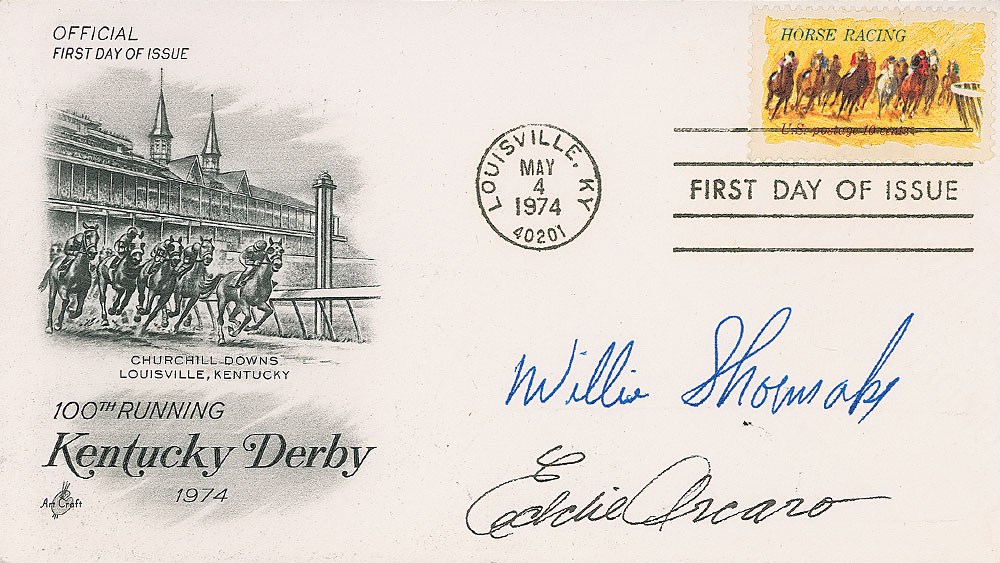 OFFICIAL
FIRST DAY OF ISSUE
HORSE RACING
U.S. postage 10 cents
LOUISVILLE, KY
MAY
4
1974
40201
FIRST DAY OF ISSUE
CHURCHILL DOWNS
LOUISVILLE, KENTUCKY
100TH RUNNING
Kentucky Derby
1974
Art Craft
Willie Shoemaker
Eddie Arcaro